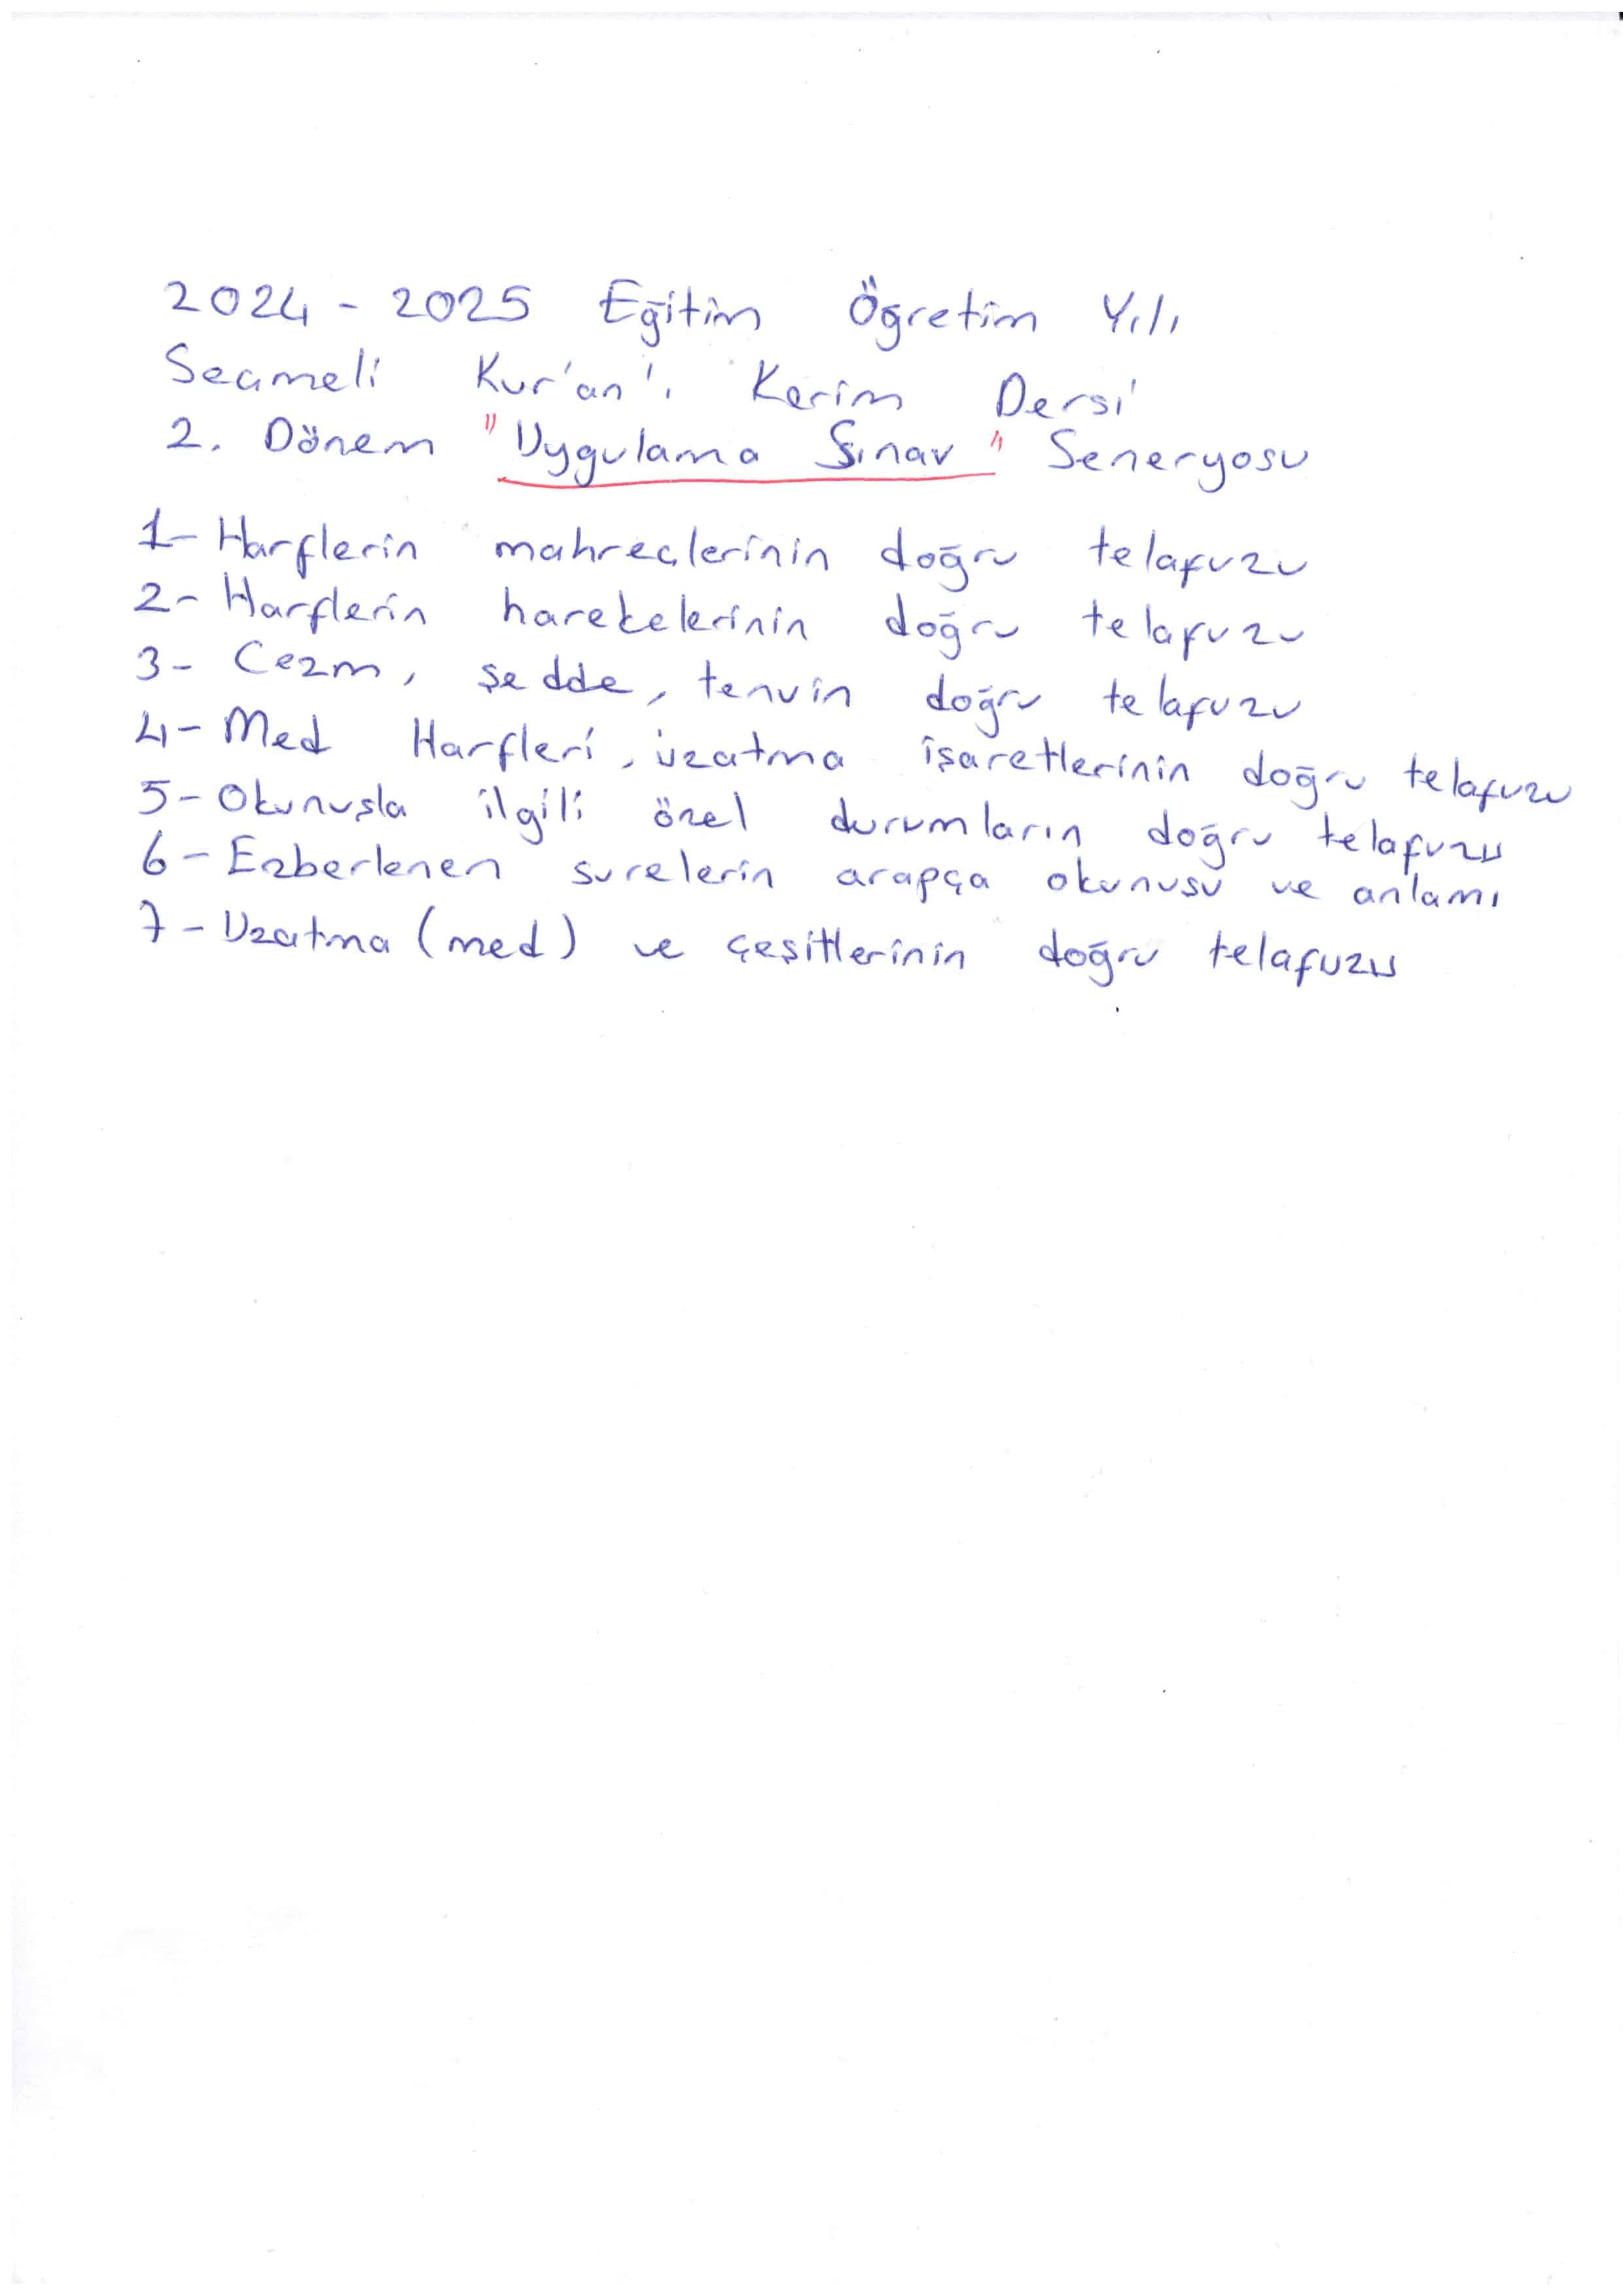 2024 - 2025 Eğitim Öğretim Yılı
Seçmeli Kur'an'ı Kerim Dersi
2. Dönem "Uygulama Sınav" Seneryosu
1- Harflerin mahreçlerinin doğru telafuzu
2- Harflerin harekelerinin doğru telafuzu
3- Cezm, şedde, tenvin doğru telafuzu
4- Med Harfleri, uzatma işaretlerinin doğru telafuzu
5- Okunuşla ilgili özel durumların doğru telafuzu
6- Ezberlenen surelerin arapça okunuşu ve anlamı
7- Uzatma (med) ve çeşitlerinin doğru telafuzu